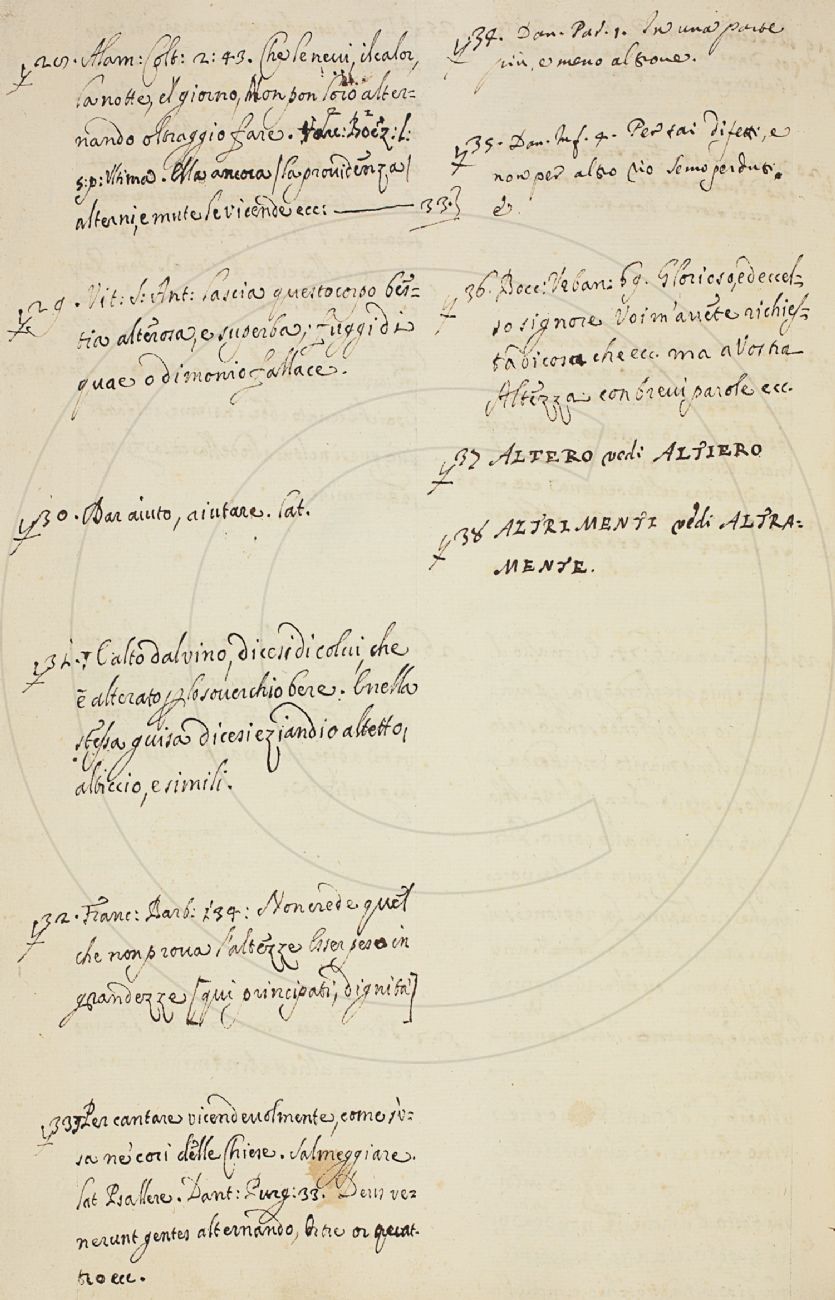 28. Alam: Colt: 2: 43. Che le nevi, il calor,
la notte, e'l giorno, Non pon loro alter-
nando oltraggio fare. Varc: Boez: l:
5: p: Ultima. Ella ancora [la providenza]
alterni, e mute le vicende ecc: 33.}
29. Vit: S: Ant: lascia questo corpo bes-
tia alterosa, e superba, fuggi di
qua e o dimonio fallace.
30. Dar aiuto, aiutare. lat.
31. L'alto dal vino, dicesi di colui, che
è alterato p lo soverchio bere. E nella
stessa guisa dicesi eziandio altetto,
albiccio, e simili.
32. Franc: Barb: 134: Non crede quel
che non prova l'altezze Esser peso in
grandezze [qui principati, dignità]
33. Per cantare vicendevolmente, come s'u-
sa ne' cori delle Chiese. Salmeggiare.
lat Psallere. Dant: Purg: 33. Deus ve-
nerunt gentes alternando, Or tre or quat-
tro ecc.
34. Dan. Par. 1. In una parte
più, e meno altrove.
35. Dan. Inf. 4. Per tai difetti, e
non per altro rio Semo perduti.
è
36. Bocc: Urban: 69. Glorioso, ed eccel-
so signore Voi m'avete richies-
ta di cosa che ecc. ma a Vostra
Altezza con brevi parole ecc.
37 ALTERO vedi ALTIERO
38 ALTRIMENTI vedi ALTRA-
MENTE.